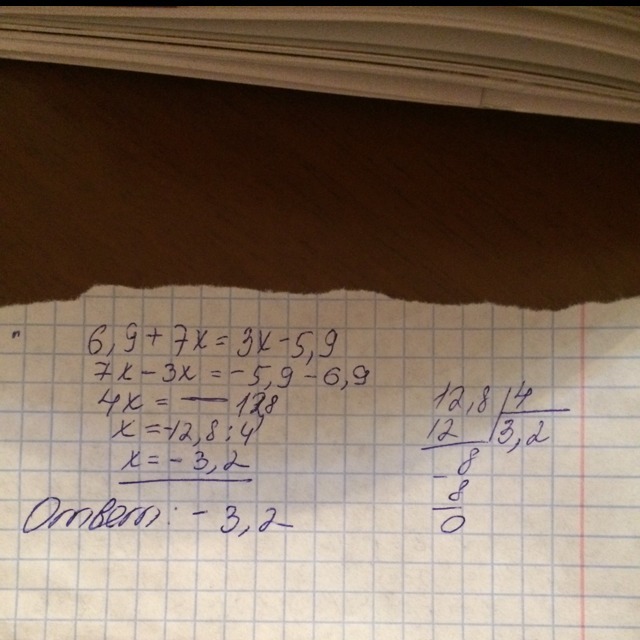 6,9 + 7x = 3x - 5,9
7x - 3x = -5,9 - 6,9
4x = - 12,8
x = -12,8 : 4
x = - 3,2
Ответ: - 3,2
12,8 | 4
12 | 3,2
8
- 8
0